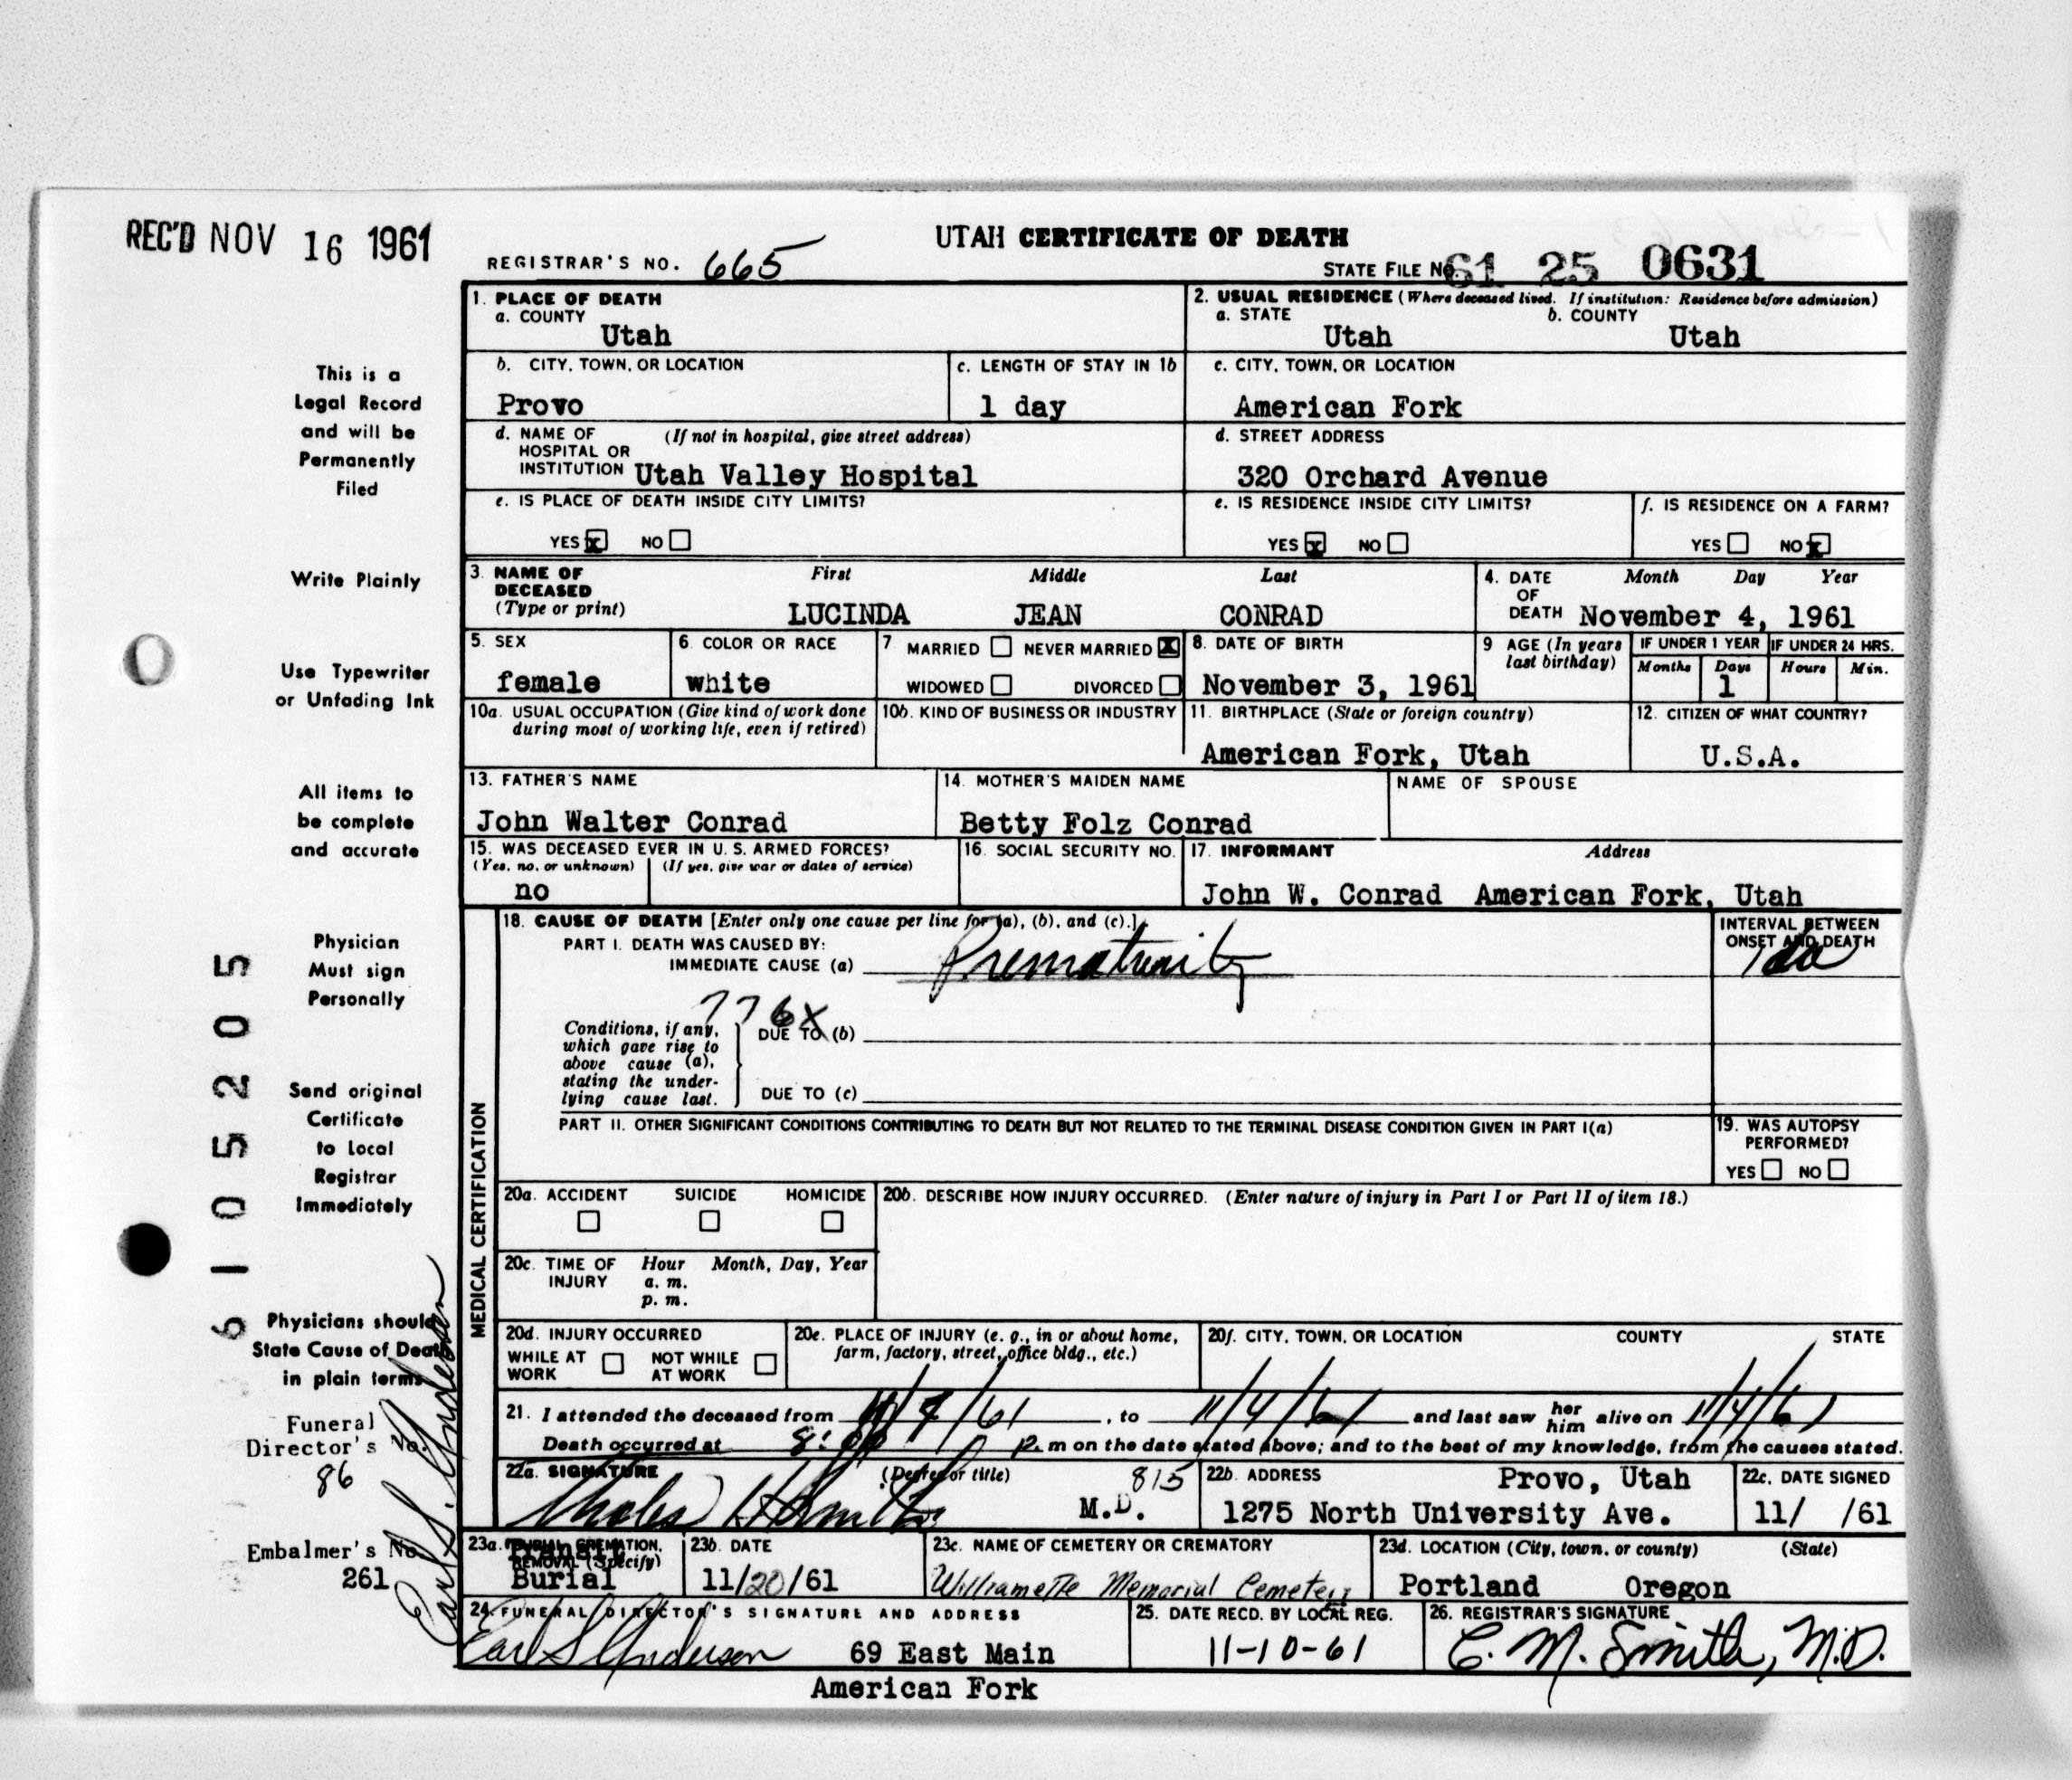 REC'D NOV 16 1961
UTAH CERTIFICATE OF DEATH
REGISTRAR'S NO. 665
STATE FILE No. 61 25 0631
1. PLACE OF DEATH
a. COUNTY
Utah
2. USUAL RESIDENCE (Where deceased lived. If institution: Residence before admission)
a. STATE b. COUNTY
Utah Utah
b. CITY, TOWN, OR LOCATION
Provo
c. LENGTH OF STAY IN 1b
1 day
c. CITY, TOWN, OR LOCATION
American Fork
d. NAME OF (If not in hospital, give street address)
HOSPITAL OR
INSTITUTION Utah Valley Hospital
d. STREET ADDRESS
320 Orchard Avenue
e. IS PLACE OF DEATH INSIDE CITY LIMITS?
YES x NO
e. IS RESIDENCE INSIDE CITY LIMITS?
YES x NO
f. IS RESIDENCE ON A FARM?
YES NO x
3. NAME OF DECEASED (Type or print)
First Middle Last
LUCINDA JEAN CONRAD
4. DATE OF DEATH
Month Day Year
November 4, 1961
5. SEX
female
6. COLOR OR RACE
white
7 MARRIED NEVER MARRIED X
WIDOWED DIVORCED
8. DATE OF BIRTH
November 3, 1961
9 AGE (In years last birthday)
IF UNDER 1 YEAR IF UNDER 24 HRS.
Months Days Hours Min.
1
10a. USUAL OCCUPATION (Give kind of work done
during most of working life, even if retired)
10b. KIND OF BUSINESS OR INDUSTRY
11. BIRTHPLACE (State or foreign country)
American Fork, Utah
12. CITIZEN OF WHAT COUNTRY?
U.S.A.
13. FATHER'S NAME
John Walter Conrad
14. MOTHER'S MAIDEN NAME
Betty Folz Conrad
NAME OF SPOUSE
15. WAS DECEASED EVER IN U.S. ARMED FORCES?
(Yes, no, or unknown) (If yes, give war or dates of service)
no
16. SOCIAL SECURITY NO.
17. INFORMANT Address
John W. Conrad American Fork, Utah
MEDICAL CERTIFICATION
18. CAUSE OF DEATH [Enter only one cause per line for (a), (b), and (c).]
PART I. DEATH WAS CAUSED BY:
IMMEDIATE CAUSE (a) Prematurity
INTERVAL BETWEEN
ONSET AND DEATH
1 da
776X
Conditions, if any,
which gave rise to
above cause (a),
stating the under-
lying cause last.
DUE TO (b)
DUE TO (c)
PART II. OTHER SIGNIFICANT CONDITIONS CONTRIBUTING TO DEATH BUT NOT RELATED TO THE TERMINAL DISEASE CONDITION GIVEN IN PART I(a)
19. WAS AUTOPSY
PERFORMED?
YES NO
20a. ACCIDENT SUICIDE HOMICIDE
20b. DESCRIBE HOW INJURY OCCURRED. (Enter nature of injury in Part I or Part II of item 18.)
20c. TIME OF INJURY
Hour Month, Day, Year
a. m.
p. m.
20d. INJURY OCCURRED
WHILE AT WORK NOT WHILE AT WORK
20e. PLACE OF INJURY (e. g., in or about home,
farm, factory, street, office bldg., etc.)
20f. CITY, TOWN, OR LOCATION COUNTY STATE
21. I attended the deceased from 11/ /61, to 11/4/61 and last saw her him alive on 11/4/61
Death occurred at 8:00 p. m on the date stated above; and to the best of my knowledge, from the causes stated.
22a. SIGNATURE (Degree or title)
M.D. 815
22b. ADDRESS Provo, Utah
1275 North University Ave.
22c. DATE SIGNED
11/ /61
23a. BURIAL, CREMATION,
REMOVAL (Specify)
Transit
Burial
23b. DATE
11/20/61
23c. NAME OF CEMETERY OR CREMATORY
Willamette Memorial Cemetery
23d. LOCATION (City, town, or county) (State)
Portland Oregon
24. FUNERAL DIRECTOR'S SIGNATURE AND ADDRESS
Earl S Anderson 69 East Main
American Fork
25. DATE RECD. BY LOCAL REG.
11-10-61
26. REGISTRAR'S SIGNATURE
C. M. Smith, M.D.
This is a
Legal Record
and will be
Permanently
Filed
Write Plainly
Use Typewriter
or Unfading Ink
All items to
be complete
and accurate
Physician
Must sign
Personally
Send original
Certificate
to Local
Registrar
Immediately
Physicians should
State Cause of Death
in plain terms
Funeral
Director's No.
86
Embalmer's No.
261
Earl S. Anderson
6105205